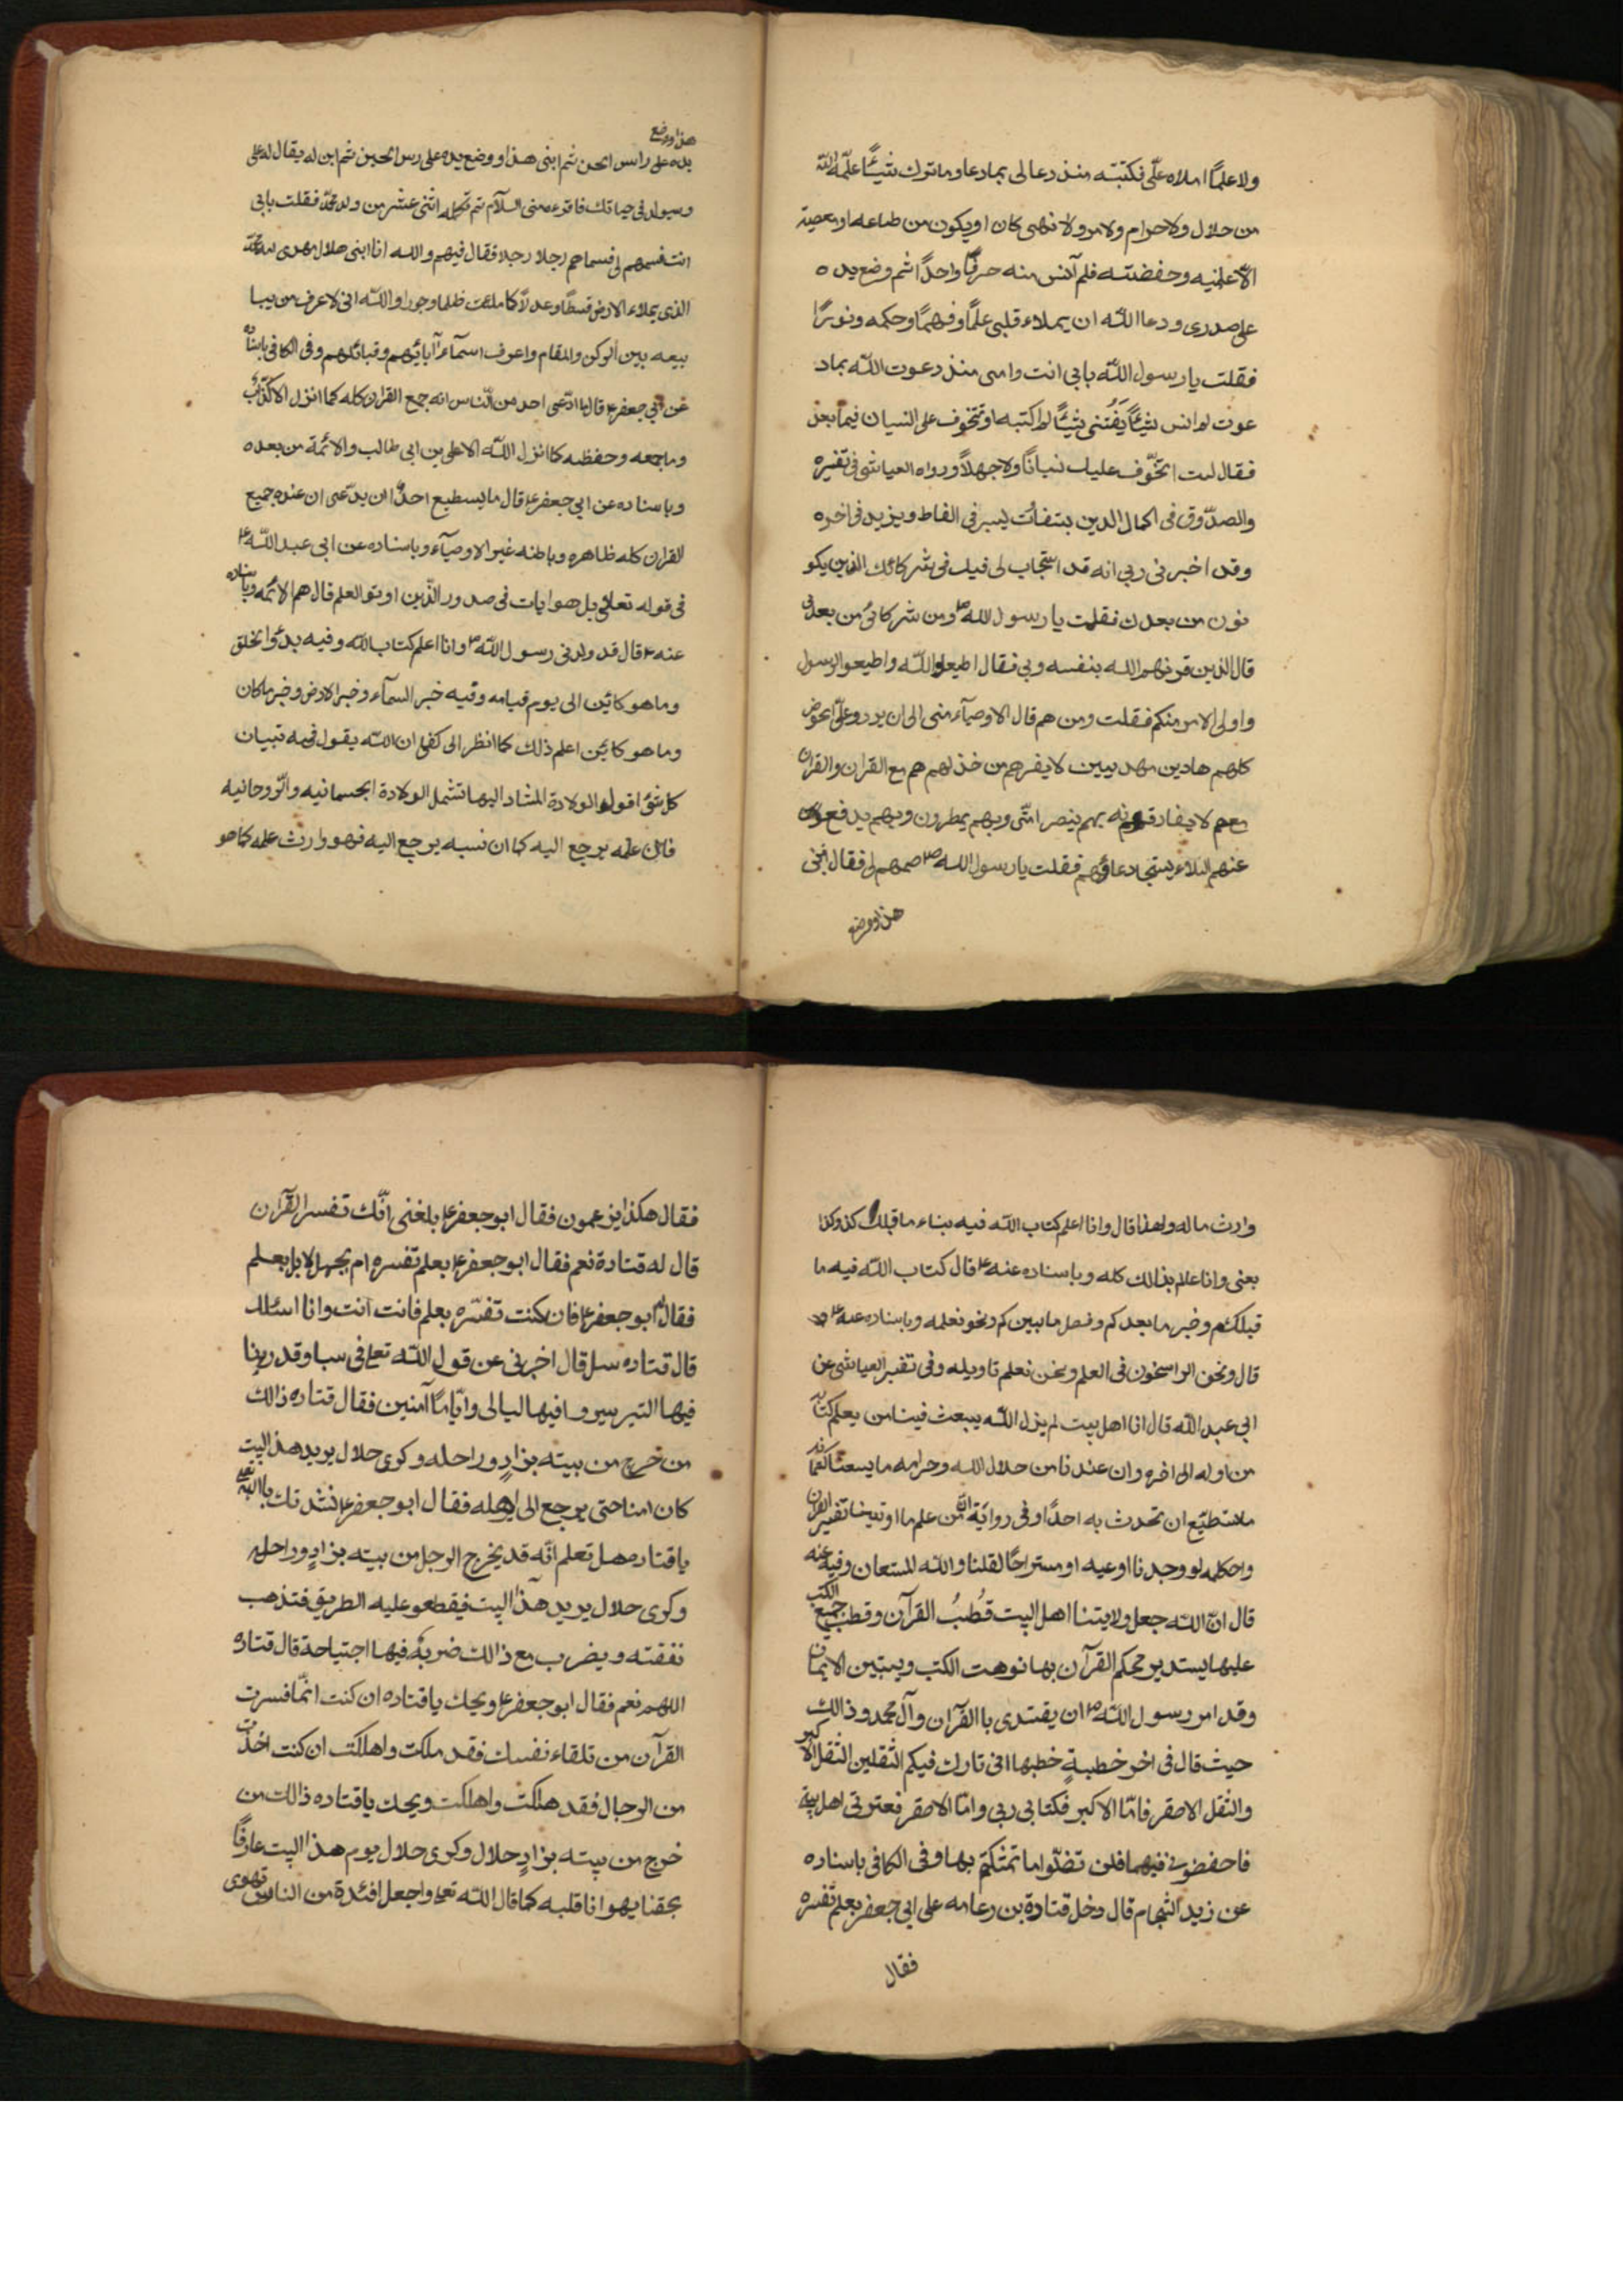 ولا علمًا املاه علّی فکتبته منذ دعا لی بما دعا وما ترك شیئًا علّمه الله
من حلال ولا حرام ولا امر ولا نهی کان او یکون من طاعه او معصیة
الّا علمنیه وحفضته فلم آنس منه حرفًا واحدًا ثم وضع یده
علی صدری ودعا الله ان یملاء قلبی علمًا وفهمًا وحکمه ونورًا
فقلت یا رسول الله بابی انت وامی منذ دعوت الله بماد
عوت لم انس شیئًا یَفُتنی شیئًا لم اکتبه او تتخوف علی النسیان فیما بعد
فقال لست اتخّوف علیك نسیانًا ولا جهلًا ورواه العیاشی فی تفسیره
والصدّوق فی اکمال الدین بتفاوت یسیر فی الفاظ ویزید فی اخره
وقد اخبرنی ربی انه قد استجاب لی فیك فی شرکائك الذین یکو
نون من بعدك فقلت یا رسول الله ص ومن شرکائی من بعدی
قال الذین قرنهم الله بنفسه وبی فقال اطیعوا الله واطیعوا الرسول
واولی الامر منکم فقلت ومن هم قال الاوصیآء منی الی ان یردو علیّ الحوض
کلهم هادین مهدیین لا یضرهم من خذلهم هم مع القران والقران
معهم لا یفارقونه بهم ینصر امتّی وبهم یمطرون وبهم یدفع
عنهم البلاء یستجاد دعاؤهم فقلت یا رسول الله ص سمهم لی فقال ابنی
هذا ووضع
هذا ووضع
یده علی راس الحسن ثم ابنی هذا ووضع یده علی رس الحسین ثم ابن له یقال له علی
وسیولد فی حیاتك فاقرءه منی السلام ثم تکمله اثنی عشر من ولد محمّد فقلت بابی
انت فسمهم لی فسماهم رجلا رجلا فقال فیهم والله انا ابنی هلال مهدی امّة محمّد
الذی یملاء الارض قسطًا وعدلًا کما ملئت ظلما وجورا والله انی لاعرف من یبا
یعه بین الرکن والمقام واعرف اسمآء آبائهم وقبائلهم وفی الکافی باسناده
عن ابی جعفر ع قال ما ادّعی احد من النّاس انه جمع القران کله کما انزل الا کذّاب
وما جمعه وحفظه کما انزل الله الا علی بن ابی طالب والائمة من بعده
وباسناده عن ابی جعفر ع قال ما یسطیع احدٌ ان یدّعی ان عنده جمیع
القران کله ظاهره وباطنه غیر الاوصیآء وباسناده عن ابی عبد الله ع
فی قوله تعالی بل هو ایات فی صدور الذّین اوتو العلم قال هم الائمه وباسناده
عنه ع قال قد ولدنی رسول الله ص وانا اعلم کتاب الله وفیه بدؤا لخلق
وما هو کائن الی یوم قیامه وفیه خبر السمآء وخبر الارض وخبر ما کان
وما هو کائن اعلم ذلك کما انظر الی کفی ان الله یقول فیه تبیان
کل شیء اقول والولادة المشار الیها تشمل الولادة الجسمانیه والرّوحانیه
فان علمه یرجع الیه کما ان نسبه یرجع الیه فهو وارث علمه کما هو
وارث ماله ولهذا قال وانا اعلم کتاب الله فیه بناء ما قبلك کذ وکذا
یعنی وانا عالم بذالك کله وباسناده عنه ع قال کتاب الله فیه ما
قبلکم وخبر ما بعدکم وفصل ما بین کم ونحو نعلمه وباسناده عنه ع
قال ونحن الراسخون فی العلم ونحن نعلم تاویله وفی تفسیر العیاشی عن
ابی عبد الله قال انا اهل بیت لم یزل الله یبعث فینا من یعلم کتابه
من اوله الی اخره وان عندنا من حلال الله وحرامه ما یسعنا کتمانه
ما نستطیّع ان تحدث به احدًا وفی روایة انّ من علم ما اوتینا تفسیر القران
واحکامه لو وجدنا اوعیه او مستراحًا لقلنا والله المستعان وفیه عنه
قال انّ الله جعل ولایتنا اهل البیت قُطُبُ القرآن وقطب جمیع الکتب
علیها یستدیر محکم القرآن بها نوهت الکتب ویستبین الایمان
وقد امر رسول الله ص ان یقتدی باالقرآن وآل محمد وذالك
حیث قال فی اخر خطبةٍ خطبها انی تارك فیکم الثقلین الثقل الاکبر
والثقل الاصغر فامّا الاکبر فکتابی ربی وامّا الاصغر فعترتی اهل بیتی
فاحفضونی فیهما فلن تضلّوا ما تمسّکتم بهما وفی الکافی باسناده
عن زید الشّحام قال دخل قتادة بن دعامه علی ابی جعفر بعلم تفسره
فقال
فقال هکذا یزعمون فقال ابو جعفر ع بلغنی انّك تفسر القرآن
قال له قتادة نعم فقال ابو جعفر ع بعلم تفسره ام بجهل لا بل بعلم
فقال له ابو جعفر ع فان کنت تفسّره بعلم فانت انت وانا اسئلك
قال قتاده سل قال اخبرنی عن قول الله تع فی سبا وقدرنا
فیها السّیر سیروا فیها لیالی وایّامًا آمنین فقال قتاده ذالك
من خرج من بیته بزادٍ وراحله وکری حلال یرید هذ البیت
کان امنا حتی یرجع الی اهله فقال ابو جعفر ع نشدتك باالله تع
یا قتاده هل تعلم انّه قد یخرج الرجل من بیته بزادٍ وراحله
وکری حلال یرید هذا البیت فیقطعو علیه الطریق فتذهب
نفقته ویضرب مع ذالك ضربةً فیها اجتیاحة قال قتاده
اللهم نعم فقال ابو جعفر ع ویحك یا قتاده ان کنت انّما فسرت
القرآن من تلقاء نفسك فقد هلکت واهلکت ان کنت اخذت
من الرجال فقد هلکت واهلکت ویحك یا قتاده ذالك من
خرج من بیته بزادٍ حلال وکری حلال یوم هذا البیت عارفًا
بحقنا یهوانا قلبه کما قال الله تع واجعل افئدة من الناس تهوی